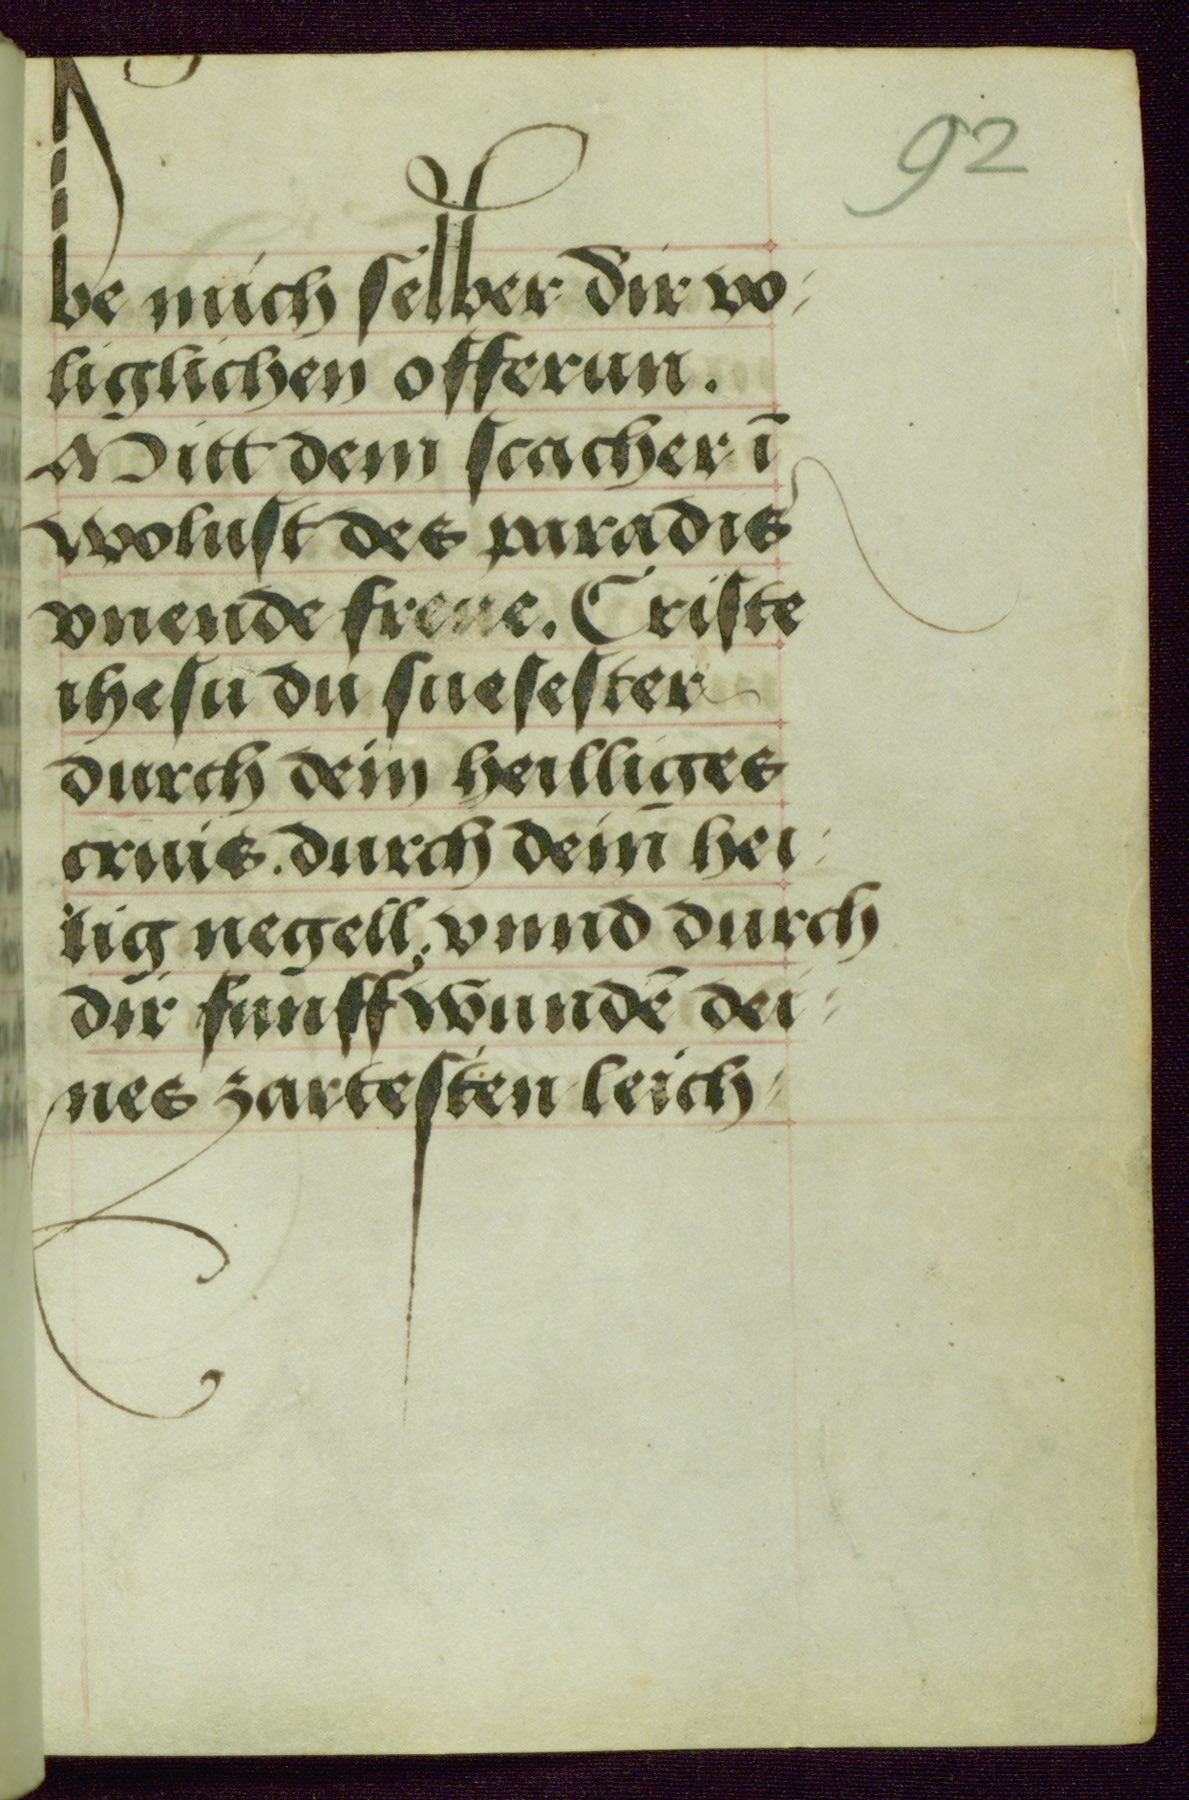 92
be mich selber dir vo⸗
liglichen offerun.
Mitt dem scacher ī
wolust des paradis
vnende freue. Criste
ihesu du suesester
durch dein heilliges
cruis. durch deiñ hei⸗
lig negell, vnnd durch
dir funff wundē dei⸗
nes zartesten leich⸗